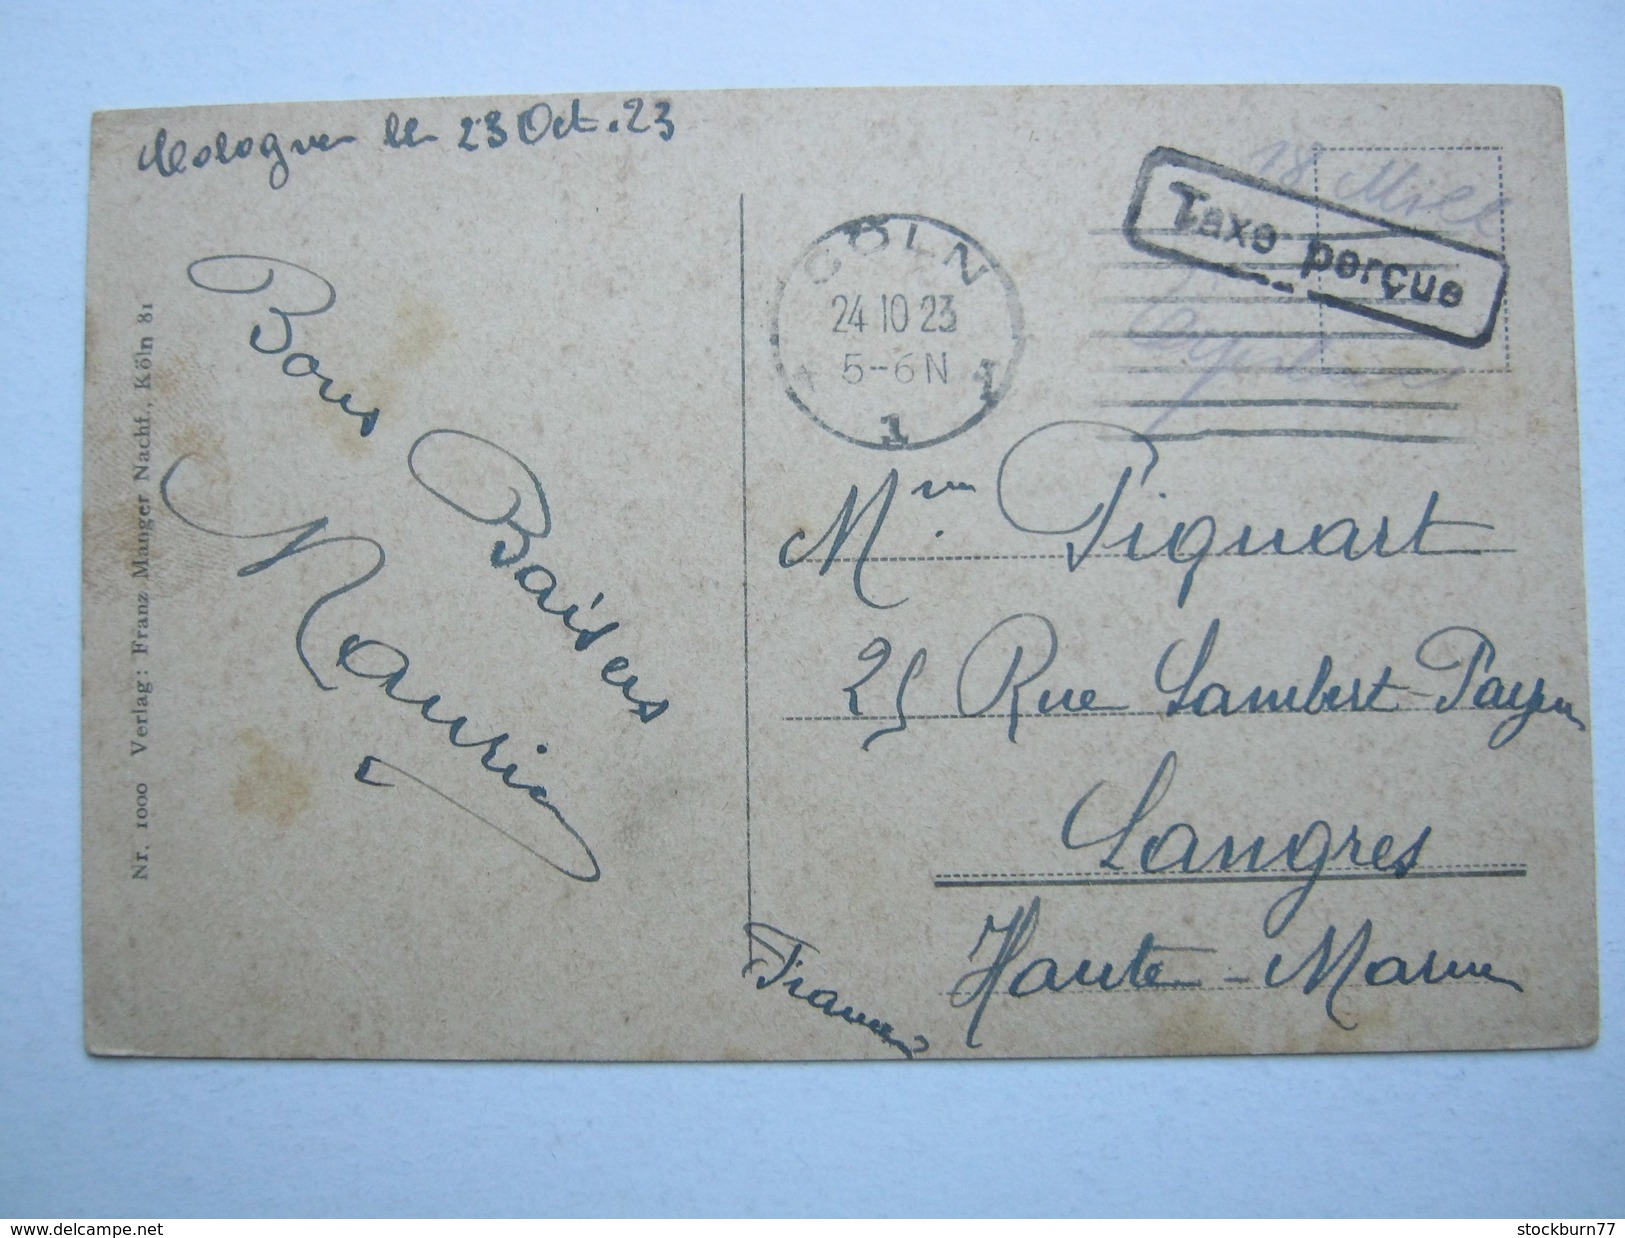 Cologne le 23 Oct. 23
Bons Baisers
Maurice
Nr. 1000 Verlag: Franz Manger Nachf., Köln 81
CÖLN
24 10 23
5-6 N
1
Taxe perçue
18 Mill
Mme. Piquart
25 Rue Lambert-Payen
Langres
Haute-Marne
France
www.delcampe.net
stockburn77